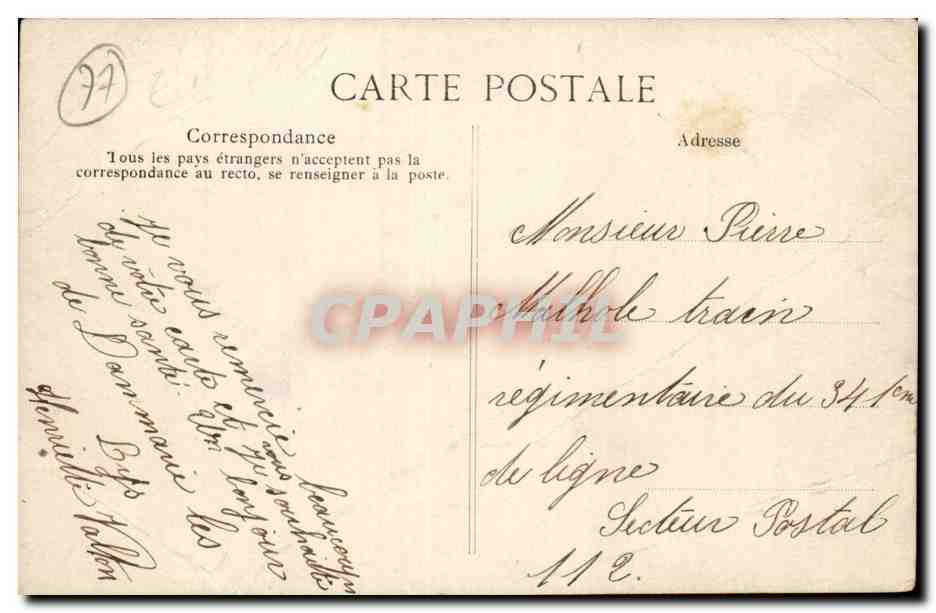 77
CARTE POSTALE
Correspondance
Tous les pays étrangers n'acceptent pas la
correspondance au recto, se renseigner à la poste.
Adresse
je vous remercie beaucoup
de votre carte et je vous souhaite
bonne santé. Un bonjour
de Dammarie les
Lys
Henriette Vallon
Monsieur Pierre
Malhole train
régimentaire du 341em
de ligne
Secteur Postal
112.
CPAPHIL